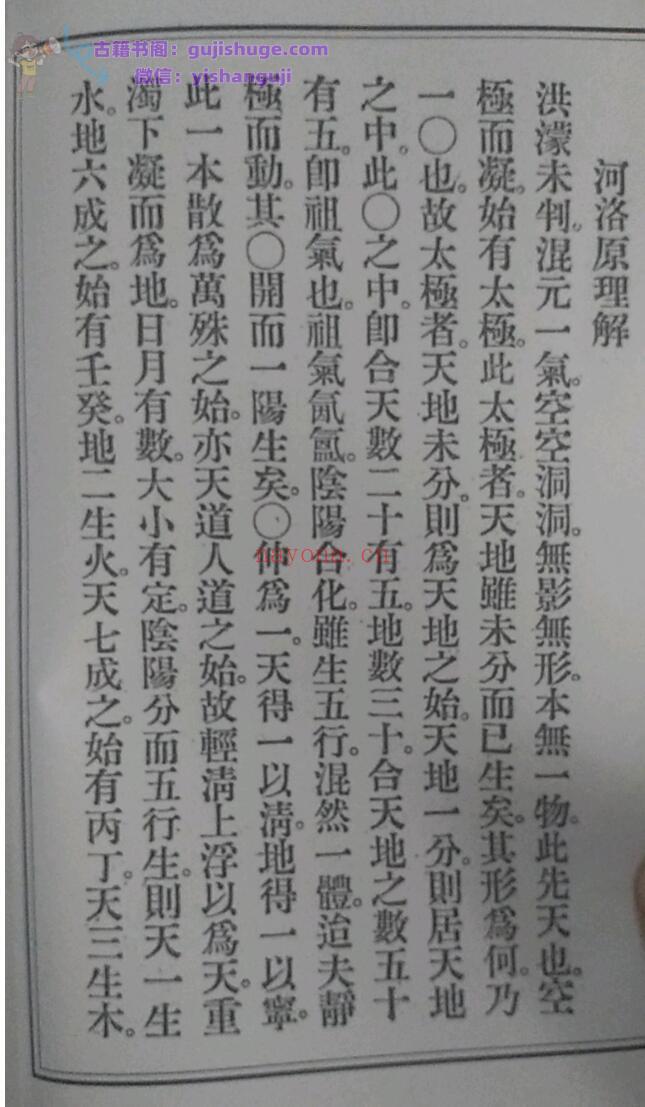 古籍书阁：gujishuge.com
微信：yishanguji
河洛原理解
洪濛未判。混元一氣。空空洞洞。無影無形。本無一物。此先天也。空
極而凝。始有太極。此太極者。天地雖未分而已生矣。其形爲何。乃
一〇也。故太極者。天地未分。則爲天地之始。天地一分。則居天地
之中。此〇之中。卽合天數二十有五。地數三十。合天地之數五十
有五。卽祖氣也。祖氣氤氳。陰陽合化。雖生五行。混然一體。迨夫靜
極而動。其〇開而一陽生矣。〇伸爲一。天得一以淸。地得一以寧。
此一本散爲萬殊之始。亦天道人道之始。故輕淸上浮以爲天。重
濁下凝而爲地。日月有數。大小有定。陰陽分而五行生。則天一生
水。地六成之。始有壬癸。地二生火。天七成之。始有丙丁。天三生木。
nayona.cn